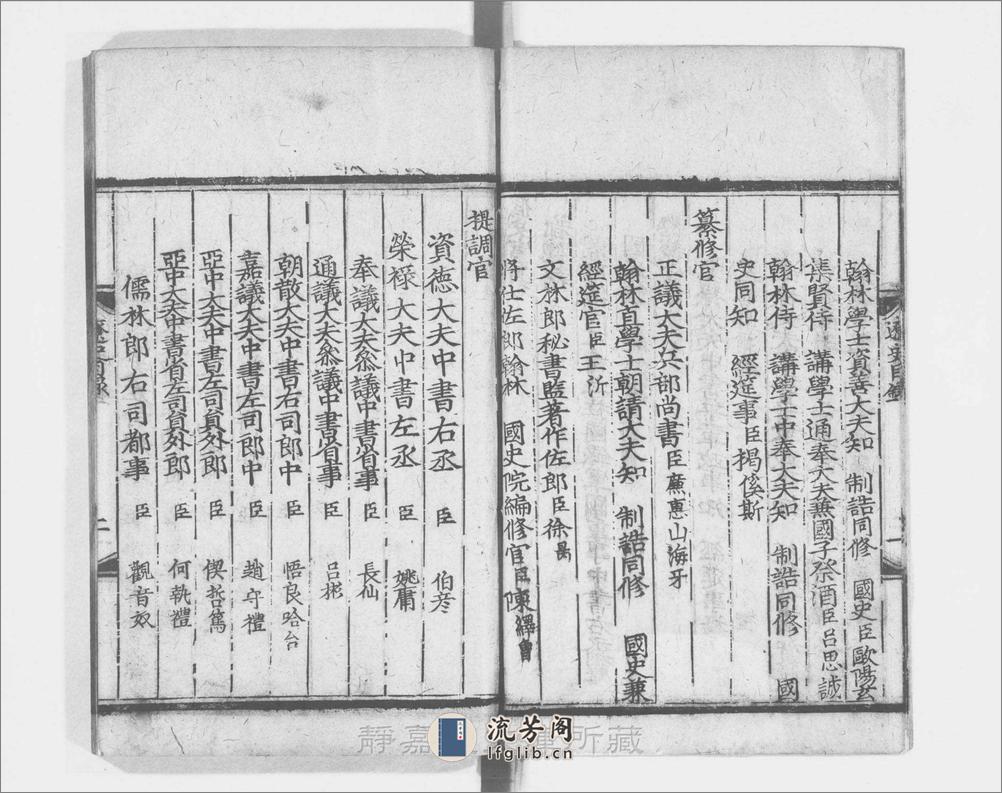 翰林學士資善大夫知　制誥同修　國史臣歐陽玄
集賢侍　講學士通奉大夫兼國子祭酒臣呂思誠
翰林侍　講學士中奉大夫知　制誥同修　國
史同知　經筵事臣揭傒斯
纂修官
正議大夫兵部尚書臣廉惠山海牙
翰林直學士朝請大夫知　制誥同修　國史兼
經筵官臣王沂
文林郎秘書監著作佐郎臣徐昺
將仕佐郎翰林　國史院編修官臣陳繹曾
提調官
資德大夫中書右丞　臣　伯彦
榮祿大夫中書左丞　臣　姚庸
奉議大夫參議中書省事　臣　長仙
通議大夫參議中書省事　臣　呂彬
朝散大夫中書右司郎中　臣　悟良哈台
嘉議大夫中書左司郎中　臣　趙守禮
亞中大夫中書省左司員外郎　臣　僕哲篤
亞中大夫中書省左司員外郎　臣　何執禮
儒林郎右司都事　臣　觀音奴
遼史目錄
二
靜嘉堂文庫所藏
流芳阁
lfglib.cn